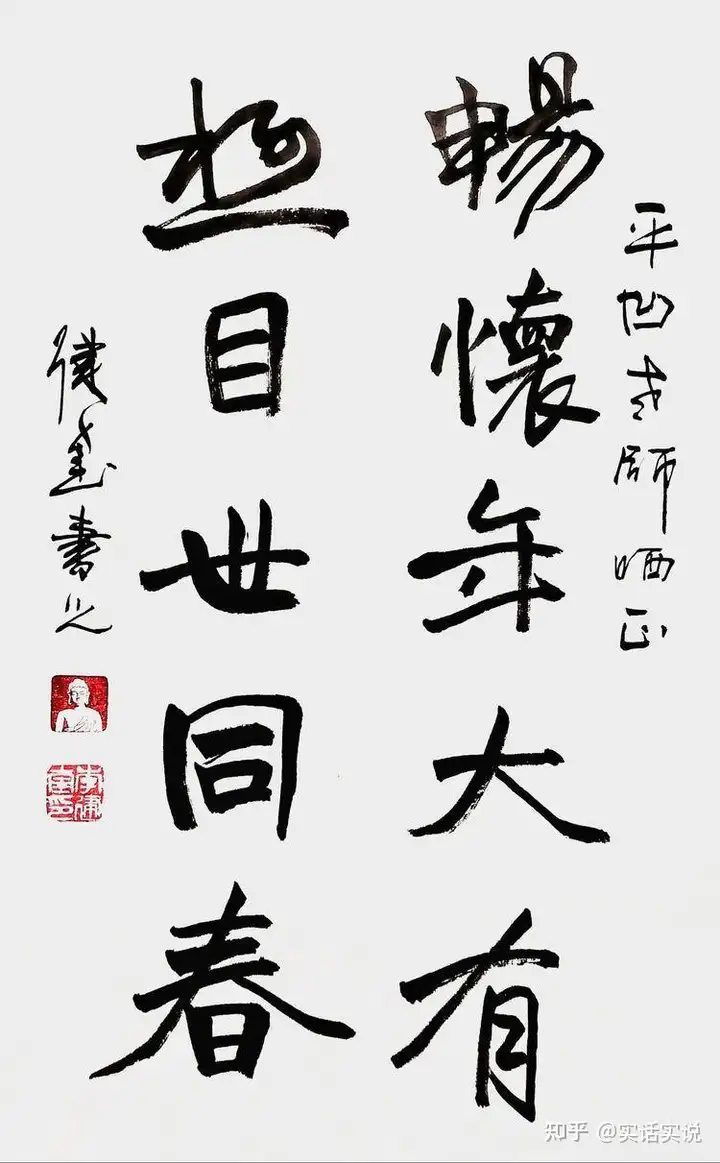 平凹老師哂正
暢懷年大有
極目世同春
建堂書之
知乎 @实话实说